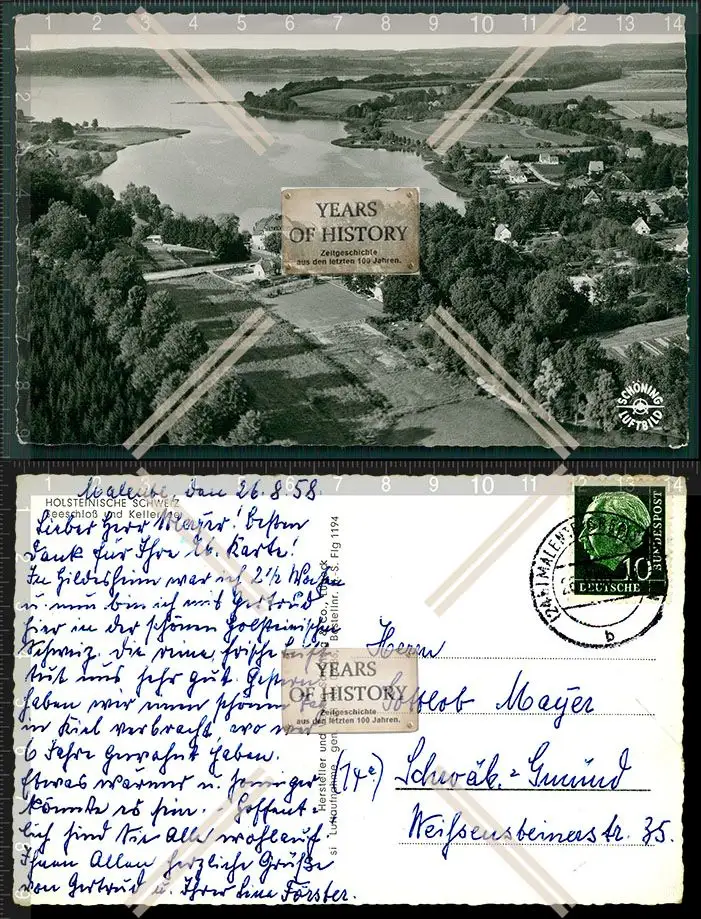 YEARS
OF HISTORY
Zeitgeschichte
aus den letzten 100 Jahren.
SCHÖNING
LUFTBILD
Malente, den 26.8.58.
HOLSTEINISCHE SCHWEIZ
Seeschloß und Kellersee
Lieber Herr Mayer! Besten
Dank für Ihre lb. Karte!
In Hildesheim war ich 2½ Wochen
u. nun bin ich mit Gertrud
hier in der schönen Holsteinischen
Schweiz. Die reine, frische Luft
tut uns sehr gut. Gestern
haben wir einen schönen Tag
in Kiel verbracht, wo wir
6 Jahre gewohnt haben.
Etwas wärmer u. sonniger
könnte es sein. - Hoffent-
lich sind Sie Alle wohlauf.
Ihnen Allen herzliche Grüße
von Gertrud u. Ihrer Line Förster.
Hersteller und
Luftaufnahme
Bestellnr. S. Flg 1194
DEUTSCHE
BUNDESPOST
10
(24b) MALENTE
b
Herrn
Gottlob Mayer
(14a) Schwäb.-Gmünd
Weißensteinerstr. 35.
YEARS
OF HISTORY
Zeitgeschichte
aus den letzten 100 Jahren.